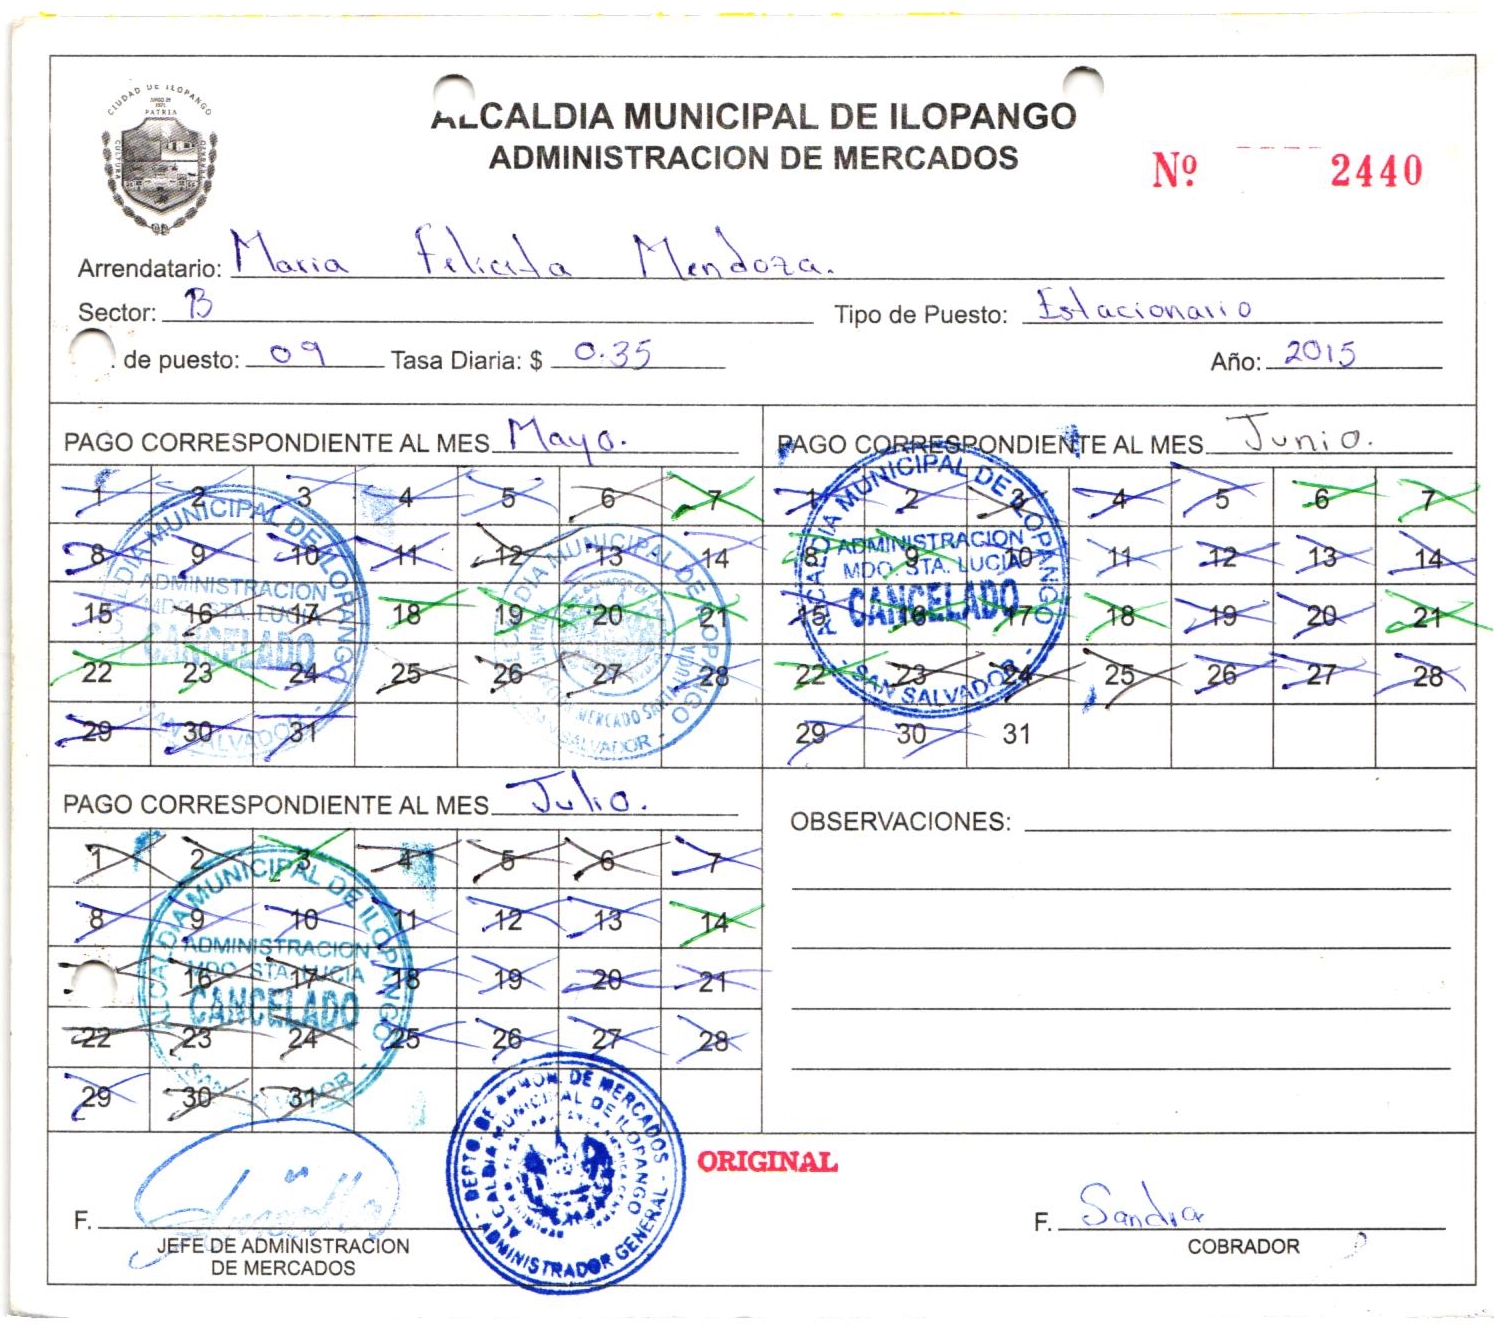 CIUDAD DE ILOPANGO
PATRIA
CULTURA
ALCALDIA MUNICIPAL DE ILOPANGO
ADMINISTRACION DE MERCADOS
Nº 2440
Arrendatario: Maria Felicita Mendoza.
Sector: B Tipo de Puesto: Estacionario
. de puesto: 09 Tasa Diaria: $ 0.35 Año: 2015
PAGO CORRESPONDIENTE AL MES Mayo.
1 2 3 4 5 6 7
8 9 10 11 12 13 14
15 16 17 18 19 20 21
22 23 24 25 26 27 28
29 30 31
ALCALDIA MUNICIPAL DE ILOPANGO
ADMINISTRACION
MDO. STA. LUCIA
CANCELADO
- SAN SALVADOR -
ALCALDIA MUNICIPAL DE ILOPANGO
MERCADO
SAN SALVADOR -
PAGO CORRESPONDIENTE AL MES Junio.
1 2 3 4 5 6 7
8 9 10 11 12 13 14
15 16 17 18 19 20 21
22 23 24 25 26 27 28
29 30 31
ALCALDIA MUNICIPAL DE ILOPANGO
ADMINISTRACION
MDO. STA. LUCIA
CANCELADO
- SAN SALVADOR -
PAGO CORRESPONDIENTE AL MES Julio.
1 2 3 4 5 6 7
8 9 10 11 12 13 14
16 17 18 19 20 21
22 23 24 25 26 27 28
29 30 31
ALCALDIA MUNICIPAL DE ILOPANGO
ADMINISTRACION
MDO. STA. LUCIA
CANCELADO
- SAN SALVADOR -
OBSERVACIONES:
DEPTO. DE ADMON. DE MERCADOS
ALCALDIA MUNICIPAL DE ILOPANGO
- ADMINISTRADOR GENERAL -
ORIGINAL
F.
JEFE DE ADMINISTRACION
DE MERCADOS
F. Sandra
COBRADOR